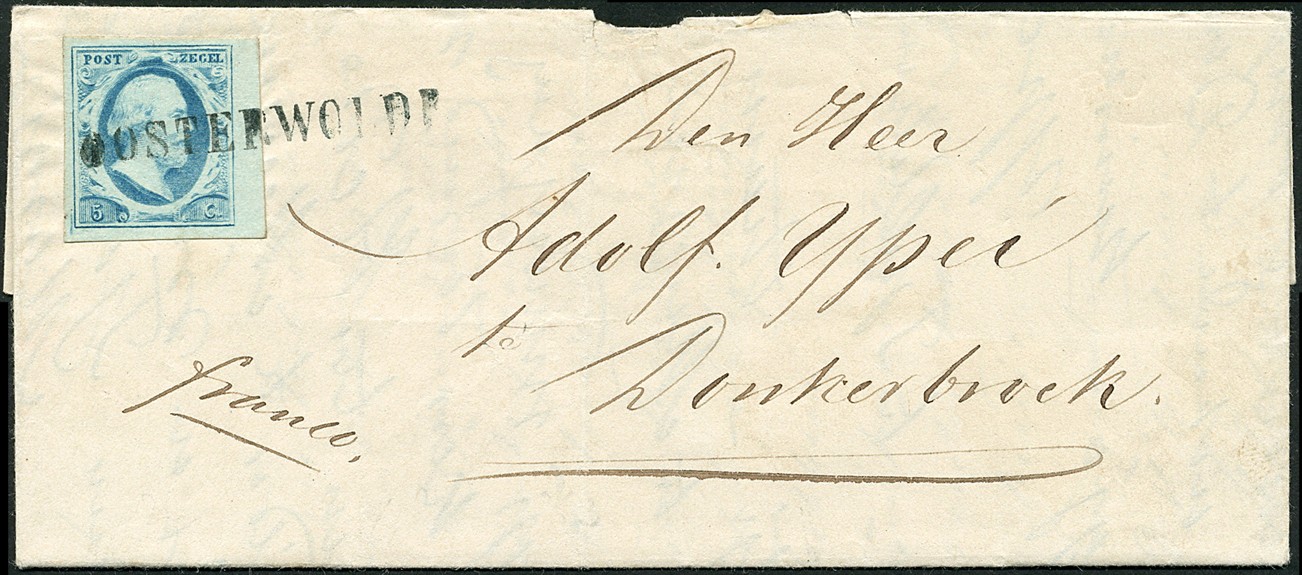 POST ZEGEL
OOSTERWOLDE
5 C.
Den Heer
Adolf. Ypeï
te
Donkerbroek.
franco.